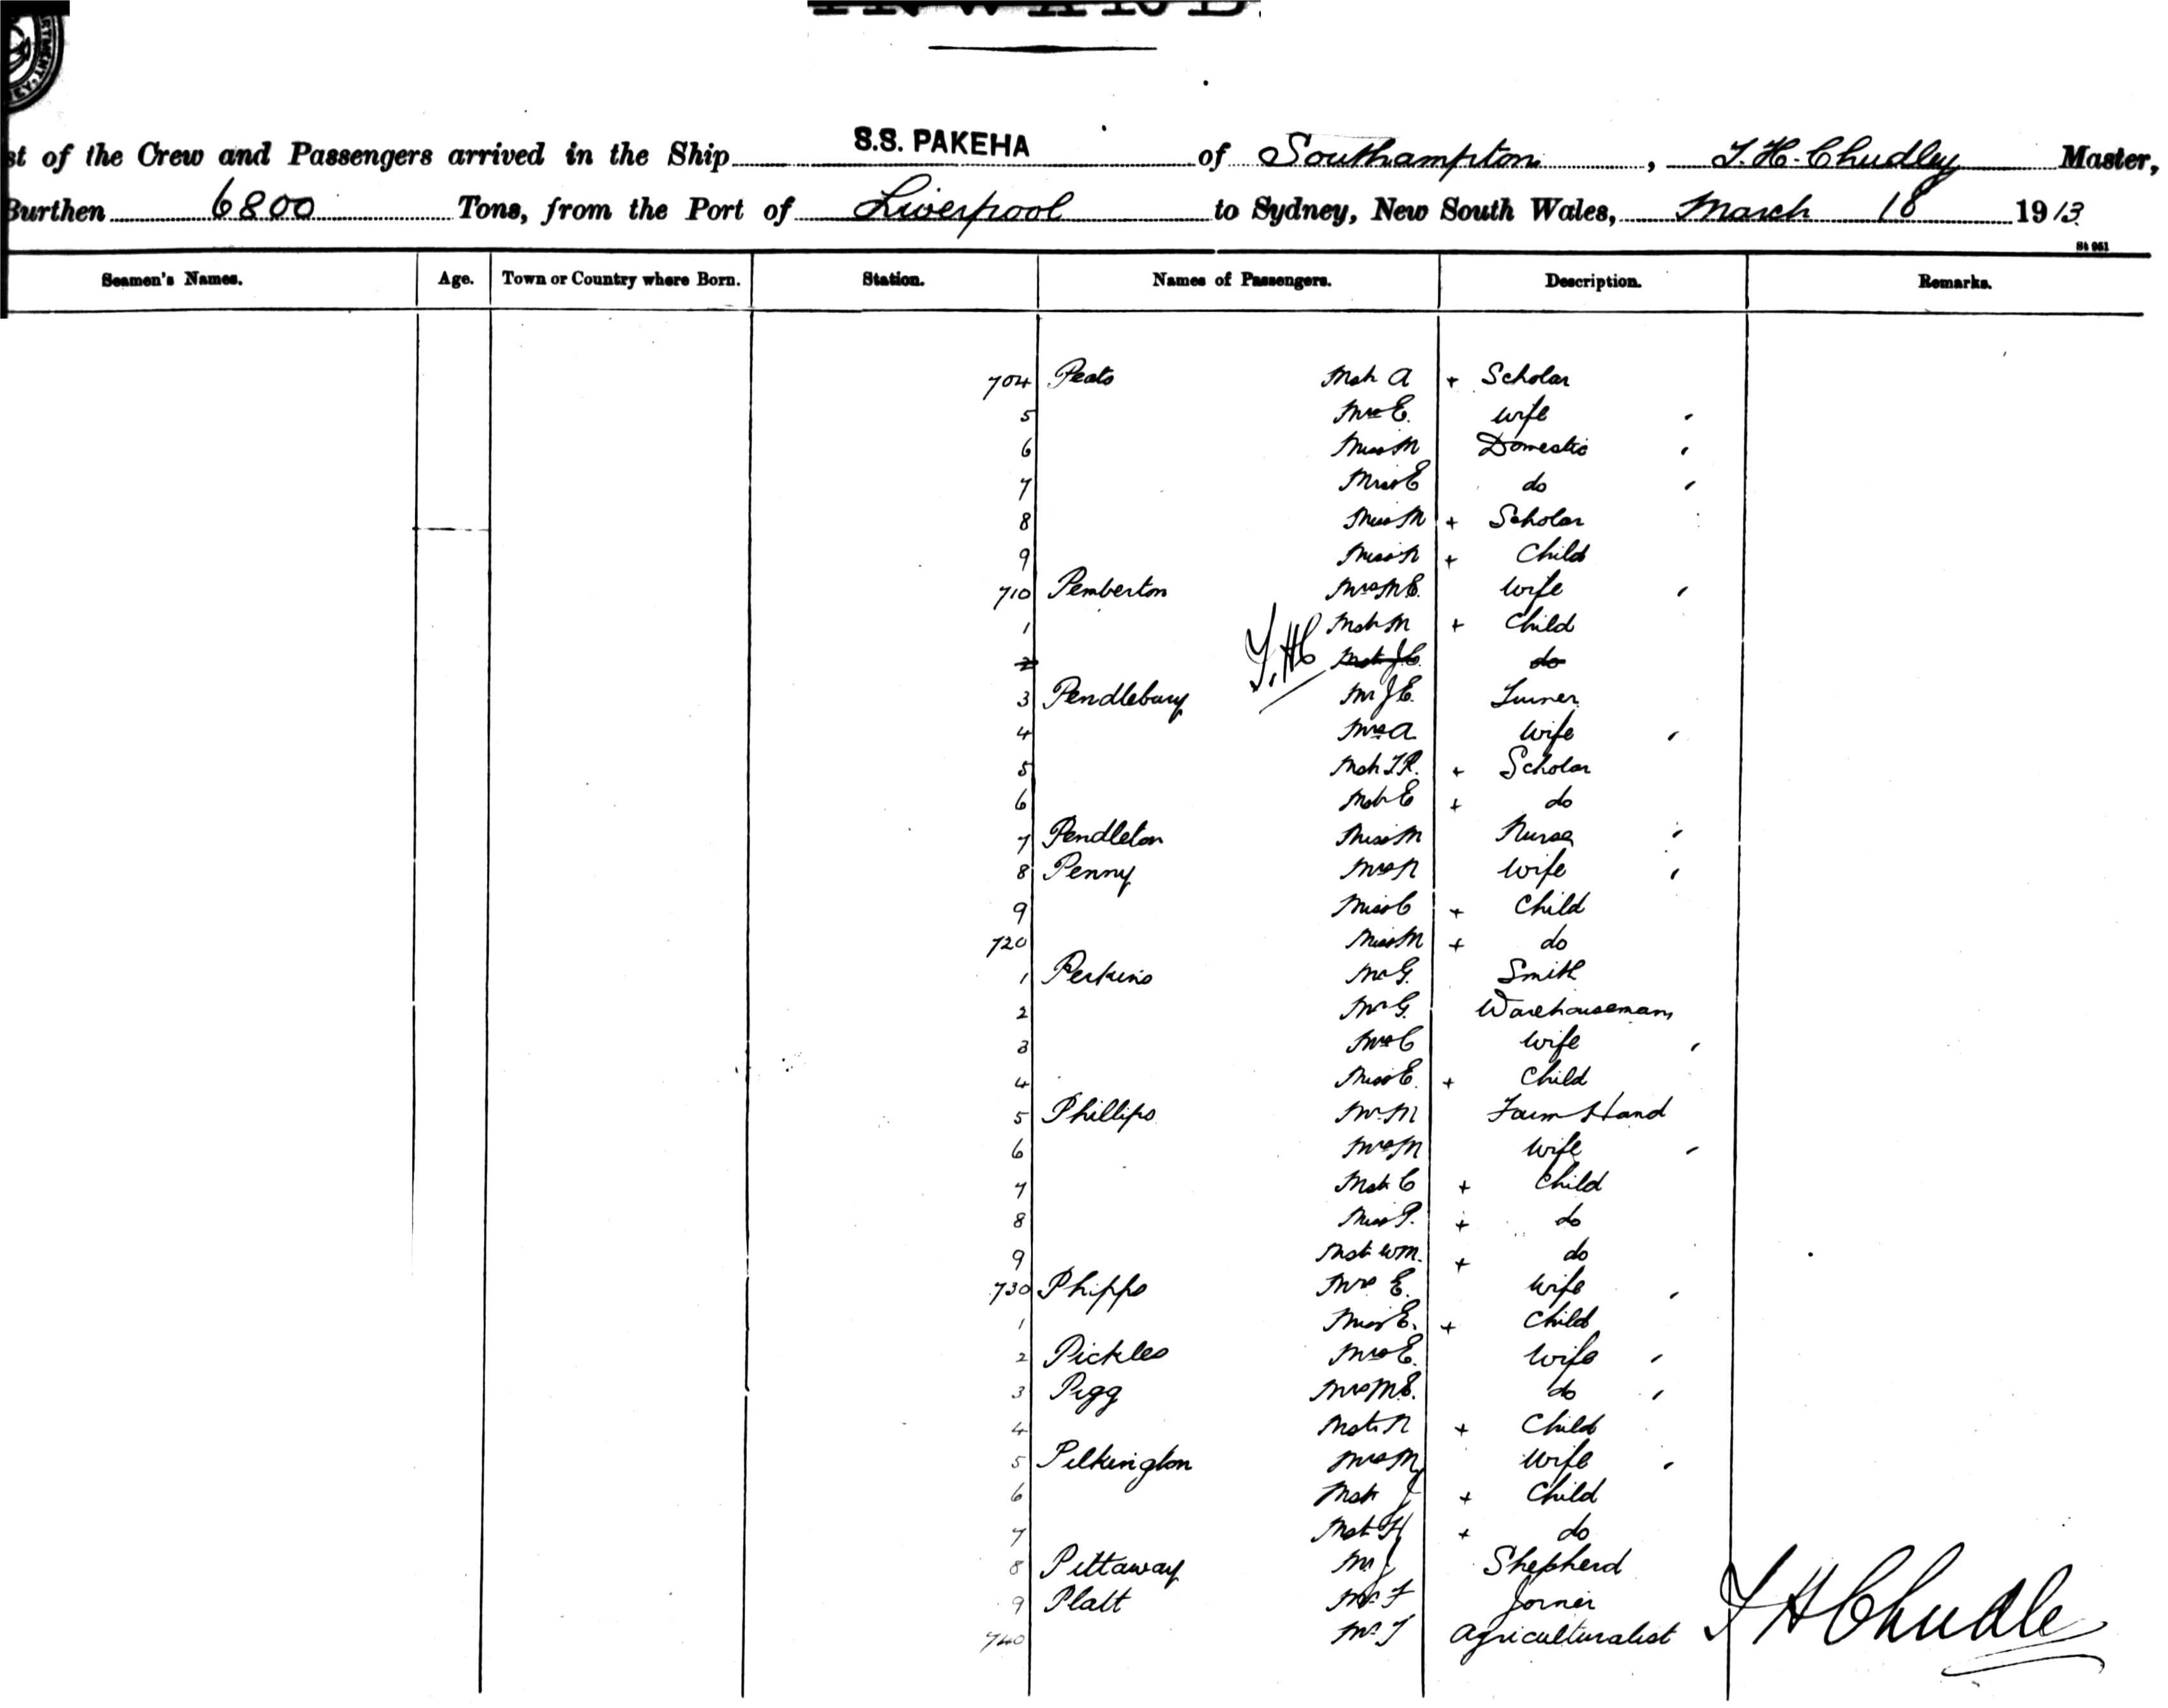 INWARD.
st of the Crew and Passengers arrived in the Ship S.S. PAKEHA of Southampton, T. H. Chudley Master,
Burthen 6800 Tons, from the Port of Liverpool to Sydney, New South Wales, March 18 1913.
St 951
Seamen's Names. Age. Town or Country where Born. Station. Names of Passengers. Description. Remarks.
704 Peats Mstr A + Scholar
5 Mrs E. Wife
6 Miss M Domestic
7 Miss E do
8 Miss M + Scholar
9 Miss N + Child
710 Pemberton Mrs M E. Wife
1 Mstr M + Child
2 T.H.C Mstr J.C. do
3 Pendlebury Mr J E. Turner
4 Mrs A Wife
5 Mstr T.R. + Scholar
6 Mstr E + do
7 Pendleton Miss M Nurse
8 Penny Mrs N Wife
9 Miss C + Child
720 Miss M + do
1 Perkins Mr G. Smith
2 Mr G. Warehouseman
3 Mrs C Wife
4 Miss E. + Child
5 Phillips Mr M Farm Hand
6 Mrs M Wife
7 Mstr C + Child
8 Miss P. + do
9 Mstr Wm. + do
730 Phipps Mrs E. Wife
1 Miss E. + Child
2 Pickles Mrs E. Wife
3 Pigg Mrs M E. do
4 Mstr N + Child
5 Pilkington Mrs M Wife
6 Mstr J + Child
7 Mstr H + do
8 Pittaway Mr J Shepherd
9 Platt Mr F Joiner
740 Mr T Agriculturalist T H Chudle